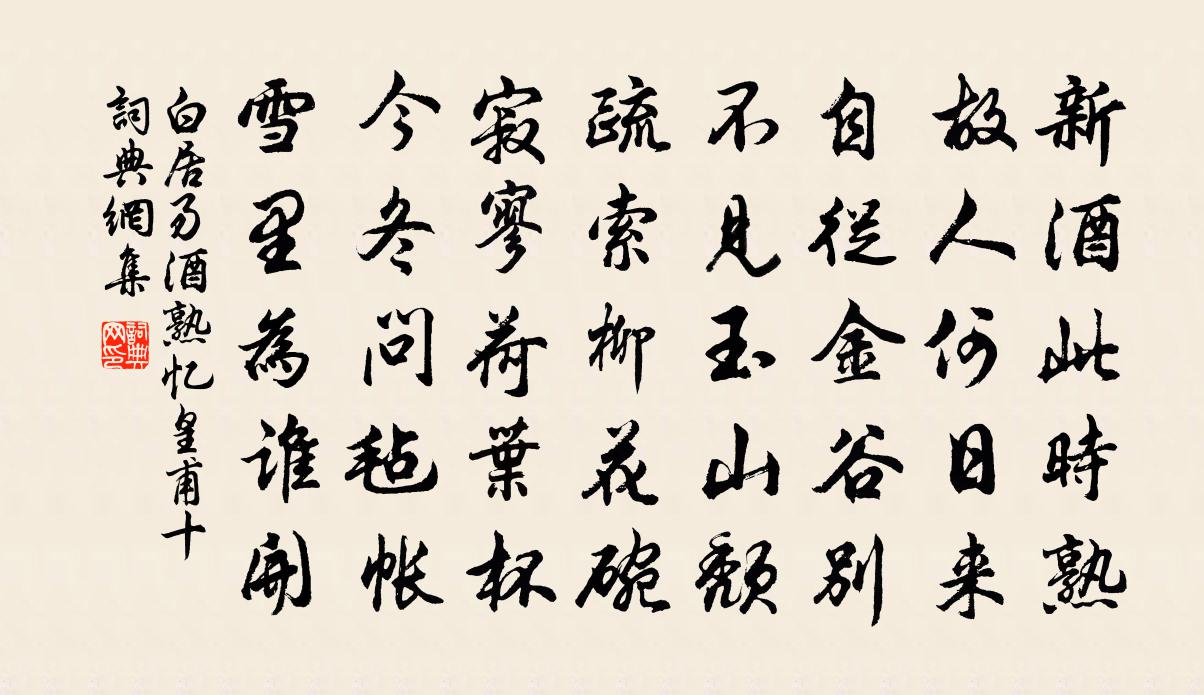 新酒此時熟
故人何日来
自從金谷別
不見玉山頹
疏索柳花碗
寂寥荷葉杯
今冬問毡帐
雪里為誰開
白居易酒熟忆皇甫十
詞典網集
詞典网印